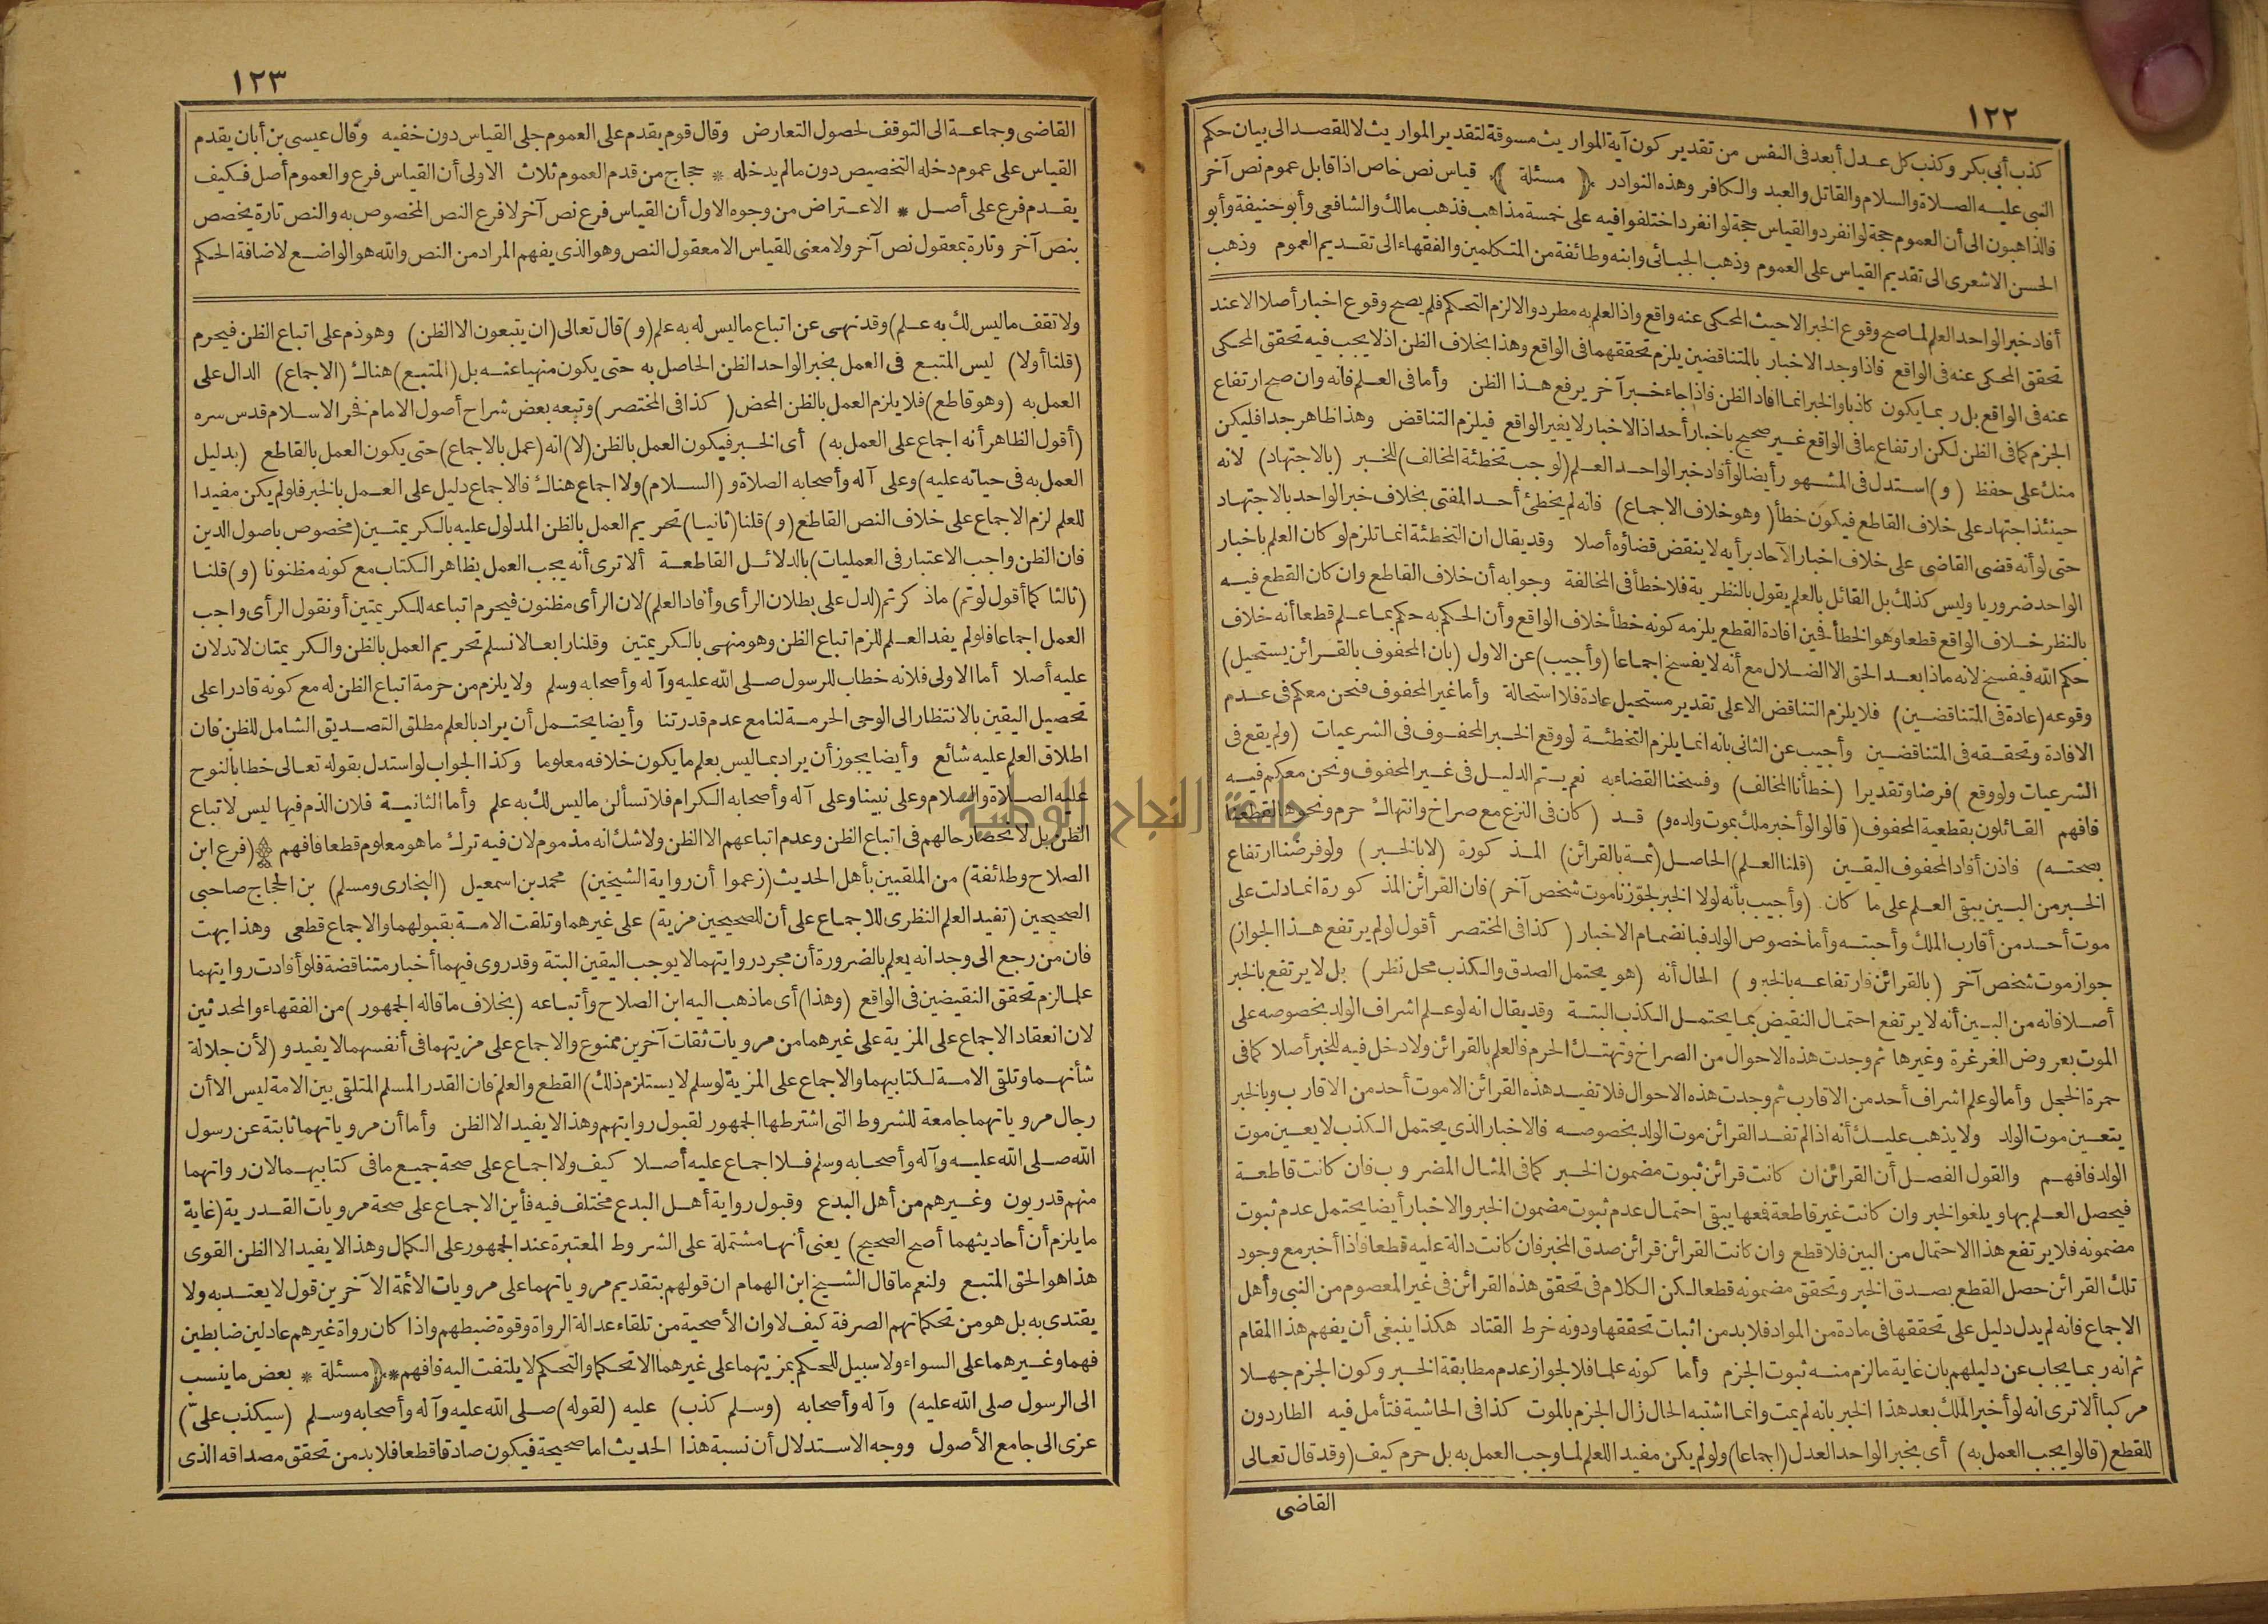 ١٢٢
كذب أبي بكر وكذب كل عدل أبعد في النفس من تقدير كون آية المواريث مسوقة لتقدير المواريث لا للقصد الى بيان حكم
النبى عليه الصلاة والسلام والقاتل والعبد والكافر وهذه النوادر ﴿ مسئلة ﴾ قياس نص خاص اذا قابل عموم نص آخر
فالذاهبون الى أن العموم حجة لو انفرد والقياس حجة لو انفرد اختلفوا فيه على خمسة مذاهب فذهب مالك والشافعى وأبو حنيفة وأبو
الحسن الاشعرى الى تقديم القياس على العموم وذهب الجبائى وابنه وطائفة من المتكلمين والفقهاء الى تقديم العموم وذهب
أفاد خبر الواحد العلم لما صح وقوع الخبر الا حيث المحكى عنه واقع واذ العلم به مطرد والا لزم التحكم فلم يصح وقوع اخبار أصلا الا عند
تحقق المحكى عنه فى الواقع فاذا وجد الاخبار بالمتناقضين يلزم تحققهما فى الواقع وهذا بخلاف الظن اذ لا يجب فيه تحقق المحكى
عنه فى الواقع بل ربما يكون كاذبا والخبر انما افاد الظن فاذا جاء خبر آخر يرفع هذا الظن وأما فى العلم فانه وان صح ارتفاع
الجزم كما فى الظن لكن ارتفاع ما فى الواقع غير صحيح باخبار أحد اذ الاخبار لا يغير الواقع فيلزم التناقض وهذا ظاهر جدا فليكن
منك على حفظ (و) استدل فى المشهور أيضا لو أفاد خبر الواحد العلم (لوجب تخطئة المخالف) للخبر (بالاجتهاد) لانه
حينئذ اجتهاد على خلاف القاطع فيكون خطأ (وهو خلاف الاجماع) فانه لم يخطئ أحد المفتى بخلاف خبر الواحد بالاجتهاد
حتى لو أنه قضى القاضى على خلاف اخبار الآحاد برأيه لا ينقض قضاؤه أصلا وقد يقال ان التخطئة انما تلزم لو كان العلم باخبار
الواحد ضروريا وليس كذلك بل القائل بالعلم يقول بالنظرية فلا خطأ فى المخالفة وجوابه أن خلاف القاطع وان كان القطع فيه
بالنظر خلاف الواقع قطعا وهو الخطأ فحين افادة القطع يلزمه كونه خطأ خلاف الواقع وأن الحكم به حكم بما علم قطعا أنه خلاف
حكم الله فيفسخ لانه ماذا بعد الحق الا الضلال مع أنه لا يفسخ اجماعا (وأجيب) عن الاول (بان المحفوف بالقرائن يستحيل)
وقوعه (عادة فى المتناقضين) فلا يلزم التناقض الا على تقدير مستحيل عادة فلا استحالة وأما غير المحفوف فنحن معكم فى عدم
الافادة وتحققه فى المتناقضين وأجيب عن الثانى بانه انما يلزم التخطئة لو وقع الخبر المحفوف فى الشرعيات (ولم يقع فى
الشرعيات ولو وقع) فرضا وتقديرا (خطأنا المخالف) وفسخنا القضاء به نعم يتم الدليل فى غير المحفوف ونحن معكم فيه
فافهم القائلون بقطعية المحفوف (قالوا لو أخبر ملك بموت ولده و) قد (كان فى النزع مع صراخ وانتهاك حرم ونحوها لقطعنا
بصحته) فاذن أفاد المحفوف اليقين (قلنا العلم) الحاصل (ثمة بالقرائن) المذكورة (لا بالخبر) ولو فرضنا ارتفاع
الخبر من البين يبقى العلم على ما كان (وأجيب بأنه لولا الخبر لجوزنا موت شخص آخر) فان القرائن المذكورة انما دلت على
موت أحد من أقارب الملك وأحبته وأما خصوص الولد فبانضمام الاخبار (كذا فى المختصر أقول لو لم يرتفع هذا الجواز)
جواز موت شخص آخر (بالقرائن فارتفاعه بالخبر و) الحال أنه (هو يحتمل الصدق والكذب محل نظر) بل لا يرتفع بالخبر
أصلا فانه من البين أنه لا يرتفع احتمال النقيض بما يحتمل الكذب البتة وقد يقال انه لو علم اشراف الولد بخصوصه على
الموت بعروض الغرغرة وغيرها ثم وجدت هذه الاحوال من الصراخ وتهتك الحرم فالعلم بالقرائن ولا دخل فيه للخبر أصلا كما فى
حمرة الخجل وأما لو علم اشراف أحد من الاقارب ثم وجدت هذه الاحوال فلا تفيد هذه القرائن الا موت أحد من الاقارب وبالخبر
يتعين موت الولد ولا يذهب عليك أنه اذا لم تفد القرائن موت الولد بخصوصه فالاخبار الذى يحتمل الكذب لا يعين موت
الولد فافهم والقول الفصل أن القرائن ان كانت قرائن ثبوت مضمون الخبر كما فى المثال المضروب فان كانت قاطعة
فيحصل العلم بها ويلغو الخبر وان كانت غير قاطعة فعها يبقى احتمال عدم ثبوت مضمون الخبر والاخبار أيضا يحتمل عدم ثبوت
مضمونه فلا يرتفع هذا الاحتمال من البين فلا قطع وان كانت القرائن قرائن صدق المخبر فان كانت دالة عليه قطعا فاذا أخبر مع وجود
تلك القرائن حصل القطع بصدق الخبر وتحقق مضمونه قطعا لكن الكلام فى تحقق هذه القرائن فى غير المعصوم من النبى وأهل
الاجماع فانه لم يدل دليل على تحققها فى مادة من المواد فلا بد من اثبات تحققها ودونه خرط القتاد هكذا ينبغى أن يفهم هذا المقام
ثم انه ربما يجاب عن دليلهم بان غاية ما لزم منه ثبوت الجزم وأما كونه علما فلا لجواز عدم مطابقة الخبر وكون الجزم جهلا
مركبا ألا ترى انه لو أخبر الملك بعد هذا الخبر بانه لم يمت وانما اشتبه الحال زال الجزم بالموت كذا فى الحاشية فتأمل فيه الطاردون
للقطع (قالوا يجب العمل به) أى بخبر الواحد العدل (اجماعا) ولو لم يكن مفيدا للعلم لما وجب العمل به بل حرم كيف (وقد قال تعالى
القاضى
١٢٣
القاضى وجماعة الى التوقف لحصول التعارض وقال قوم يقدم على العموم جلى القياس دون خفيه وقال عيسى بن أبان يقدم
القياس على عموم دخله التخصيص دون ما لم يدخله * حجاج من قدم العموم ثلاث الاولى أن القياس فرع والعموم أصل فكيف
يقدم فرع على أصل * الاعتراض من وجوه الاول أن القياس فرع نص آخر لا فرع النص المخصوص به والنص تارة يخصص
بنص آخر وتارة بمعقول نص آخر ولا معنى للقياس الا معقول النص وهو الذى يفهم المراد من النص والله هو الواضع لاضافة الحكم
ولا تقف ما ليس لك به علم) وقد نهى عن اتباع ما ليس له به علم (و) قال تعالى (ان يتبعون الا الظن) وهو ذم على اتباع الظن فيحرم
(قلنا أولا) ليس المتبع فى العمل بخبر الواحد الظن الحاصل به حتى يكون منهيا عنه بل (المتبع) هناك (الاجماع) الدال على
العمل به (وهو قاطع) فلا يلزم العمل بالظن المحض (كذا فى المختصر) وتبعه بعض شراح أصول الامام فخر الاسلام قدس سره
(أقول الظاهر أنه اجماع على العمل به) أى الخبر فيكون العمل بالظن (لا) انه (عمل بالاجماع) حتى يكون العمل بالقاطع (بدليل
العمل به فى حياته عليه) وعلى آله وأصحابه الصلاة و (السلام) ولا اجماع هناك فالاجماع دليل على العمل بالخبر فلو لم يكن مفيدا
للعلم لزم الاجماع على خلاف النص القاطع (و) قلنا (ثانيا) تحريم العمل بالظن المدلول عليه بالكريمتين (مخصوص باصول الدين
فان الظن واجب الاعتبار فى العمليات) بالدلائل القاطعة ألا ترى أنه يجب العمل بظاهر الكتاب مع كونه مظنونا (و) قلنا
(ثالثا كما أقول لو تم) ما ذكرتم (لدل على بطلان الرأى وأفاد العلم) لان الرأى مظنون فيحرم اتباعه للكريمتين أو نقول الرأى واجب
العمل اجماعا فلو لم يفد العلم للزم اتباع الظن وهو منهى بالكريمتين وقلنا رابعا لا نسلم تحريم العمل بالظن والكريمتان لا تدلان
عليه أصلا أما الاولى فلانه خطاب للرسول صلى الله عليه وآله وأصحابه وسلم ولا يلزم من حرمة اتباع الظن له مع كونه قادرا على
تحصيل اليقين بالانتظار الى الوحى الحرمة لنا مع عدم قدرتنا وأيضا يحتمل أن يراد بالعلم مطلق التصديق الشامل للظن فان
اطلاق العلم عليه شائع وأيضا يجوز أن يراد بما ليس بعلم ما يكون خلافه معلوما وكذا الجواب لو استدل بقوله تعالى خطابا لنوح
عليه الصلاة والسلام وعلى نبينا وعلى آله وأصحابه الكرام فلا تسألن ما ليس لك به علم وأما الثانية فلان الذم فيها ليس لاتباع
الظن بل لانحصار حالهم فى اتباع الظن وعدم اتباعهم الا الظن ولا شك انه مذموم لان فيه ترك ما هو معلوم قطعا فافهم (فرع ابن
الصلاح وطائفة) من الملقبين بأهل الحديث (زعموا أن رواية الشيخين) محمد بن اسمعيل (البخارى ومسلم) بن الحجاج صاحبى
الصحيحين (تفيد العلم النظرى للاجماع على أن للصحيحين مزية) على غيرهما وتلقت الامة بقبولهما والاجماع قطعى وهذا بهت
فان من رجع الى وجدانه يعلم بالضرورة أن مجرد روايتهما لا يوجب اليقين البتة وقد روى فيهما أخبار متناقضة فلو أفادت روايتهما
علما لزم تحقق النقيضين فى الواقع (وهذا) أى ما ذهب اليه ابن الصلاح وأتباعه (بخلاف ما قاله الجمهور) من الفقهاء والمحدثين
لان انعقاد الاجماع على المزية على غيرهما من مرويات ثقات آخرين ممنوع والاجماع على مزيتهما فى أنفسهما لا يفيد و (لأن جلالة
شأنهما وتلقى الامة لكتابيهما والاجماع على المزية لو سلم لا يستلزم ذلك) القطع والعلم فان القدر المسلم المتلقى بين الامة ليس الا أن
رجال مروياتهما جامعة للشروط التى اشترطها الجمهور لقبول روايتهم وهذا لا يفيد الا الظن وأما أن مروياتهما ثابتة عن رسول
الله صلى الله عليه وآله وأصحابه وسلم فلا اجماع عليه أصلا كيف ولا اجماع على صحة جميع ما فى كتابيهما لان رواتهما
منهم قدريون وغيرهم من أهل البدع وقبول رواية أهل البدع مختلف فيه فأين الاجماع على صحة مرويات القدرية (غاية
ما يلزم أن أحاديثهما أصح الصحيح) يعنى أنها مشتملة على الشروط المعتبرة عند الجمهور على الكمال وهذا لا يفيد الا الظن القوى
هذا هو الحق المتبع ولنعم ما قال الشيخ ابن الهمام ان قولهم بتقديم مروياتهما على مرويات الائمة الآخرين قول لا يعتد به ولا
يقتدى به بل هو من تحكماتهم الصرفة كيف لا وان الأصحية من تلقاء عدالة الرواة وقوة ضبطهم واذا كان رواة غيرهم عادلين ضابطين
فهما وغيرهما على السواء ولا سبيل للحكم بمزيتهما على غيرهما الا تحكما والتحكم لا يلتفت اليه فافهم *﴿ مسئلة * بعض ما ينسب
الى الرسول صلى الله عليه) وآله وأصحابه (وسلم كذب) عليه (لقوله) صلى الله عليه وآله وأصحابه وسلم (سيكذب علىّ)
عزى الى جامع الأصول ووجه الاستدلال أن نسبة هذا الحديث اما صحيحة فيكون صادقا قطعا فلا بد من تحقق مصداقه الذى
جامعة النجاح الوطنية